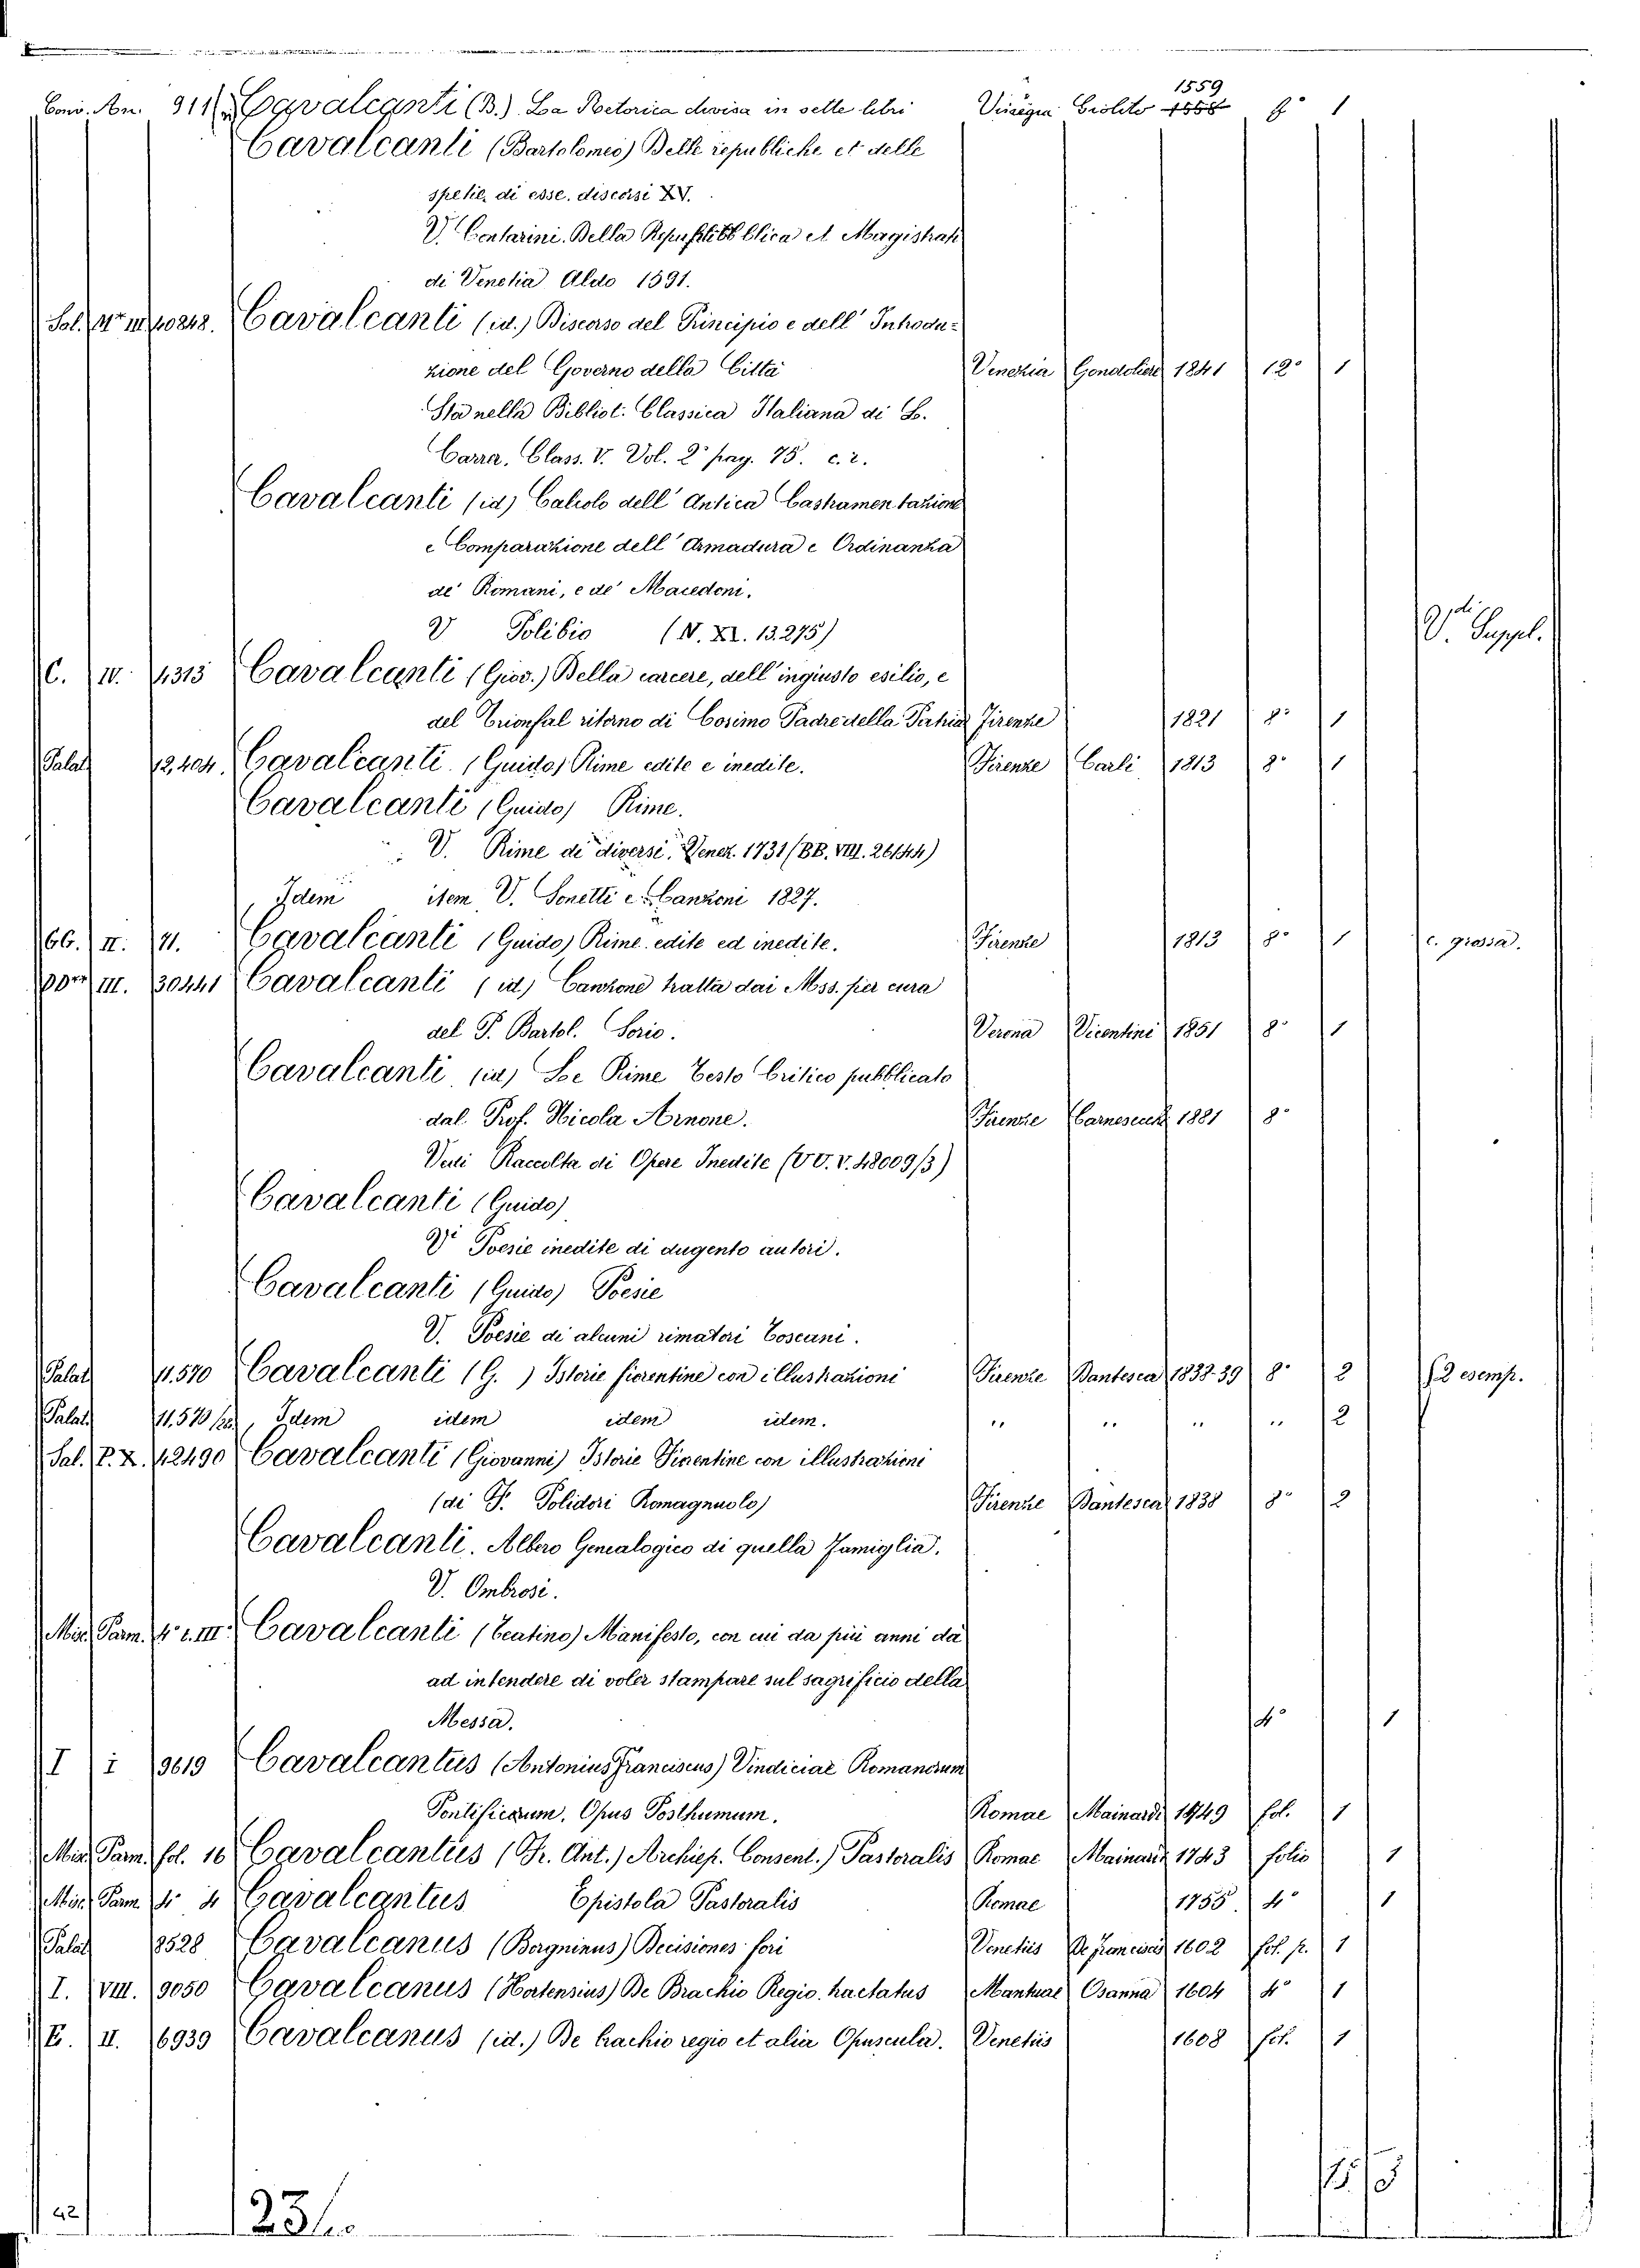 1559
Conv. An. 911 Cavalcanti (B.) La Retorica divisa in sette libri Vinegia Giolito 1558 8° 1
Cavalcanti (Bartolomeo) Delle republiche et delle
spetie, di esse, discorsi XV.
V. Contarini. Della Republica et Magistrati
di Venetia Aldo 1591.
Sal. N. III. 40248. Cavalcanti (id.) Discorso del Principio e dell' Introdu-
zione del Governo della Città Venezia Gondoliere 1841 12° 1
Sta nella Bibliot. Classica Italiana di L.
Carrer, Class. V. Vol. 2° pag. 75. c. 2.
Cavalcanti (id) Calcolo dell' Antica Castramentazione
e Comparazione dell' Armadura e Ordinanza
de' Romani, e de' Macedoni.
V Polibio (N. XI. 13.275)
V.di Suppl.
C. IV. 4313 Cavalcanti (Giov.) Della carcere, dell' ingiusto esilio, e
del Trionfal ritorno di Cosimo Padre della Patria Firenze 1821 8° 1
Palat 12,404. Cavalcanti (Guido) Rime edite e inedite. Firenze Carli 1813 8° 1
Cavalcanti (Guido) Rime.
V. Rime di diversi. Venez. 1731 (BB. VIII. 26144)
Idem item V. Sonetti e Canzoni 1827.
66. II. 71. Cavalcanti (Guido) Rime edite ed inedite. Firenze 1813 8° 1 c. grossa.
III. 30441 Cavalcanti (id) Canzone tratta dai Mss. per cura
del P. Bartol. Sorio. Verona Vicentini 1851 8° 1
Cavalcanti (id) Le Rime Testo Critico pubblicato
dal Prof. Nicola Arnone. Firenze Carnesecchi 1881 8°
Vedi Raccolta di Opere Inedite (VV. V. 48009/3)
Cavalcanti (Guido)
Vi Poesie inedite di dugento autori.
Cavalcanti (Guido) Poesie
V. Poesie di alcuni rimatori Toscani.
Palat 11.570 Cavalcanti (G.) Istorie fiorentine con illustrazioni Firenze Dantesca 1838-39 8° 2 2 esemp.
Palat. 11.570 Idem idem idem idem. " " " " 2
Sal. P. X. 42490 Cavalcanti (Giovanni) Istorie Fiorentine con illustrazioni
(di F. Polidori Romagnuolo) Firenze Dantesca 1838 8° 2
Cavalcanti. Albero Genealogico di quella Famiglia.
V. Ombrosi.
Mis. Parm. 4° 2. III Cavalcanti (Teatino) Manifesto, con cui da più anni dà
ad intendere di voler stampare sul sagrificio della
Messa. 4° 1
I i 9619 Cavalcantus (Antonius Franciscus) Vindiciae Romanorum
Pontificum. Opus Posthumum. Romae Mainardi 1749 fol. 1
Mis. Parm. fol. 16 Cavalcantus (Fr. Ant.) Archiep. Consent.) Pastoralis Romae Mainardi 1743 folio 1
Mis. Parm 4° 4 Cavalcantus Epistola Pastoralis Romae 1755 4° 1
Palat 8528 Cavalcanus (Borgninus) Decisiones fori Venetiis De Franciscis 1602 fol. p. 1
I. VIII. 9050 Cavalcanus (Hortensius) De Brachio Regio. tractatus Mantuae Osanna 1604 4° 1
E. II. 6939 Cavalcanus (id.) De brachio regio et alia Opuscula. Venetiis 1608 fol. 1
42